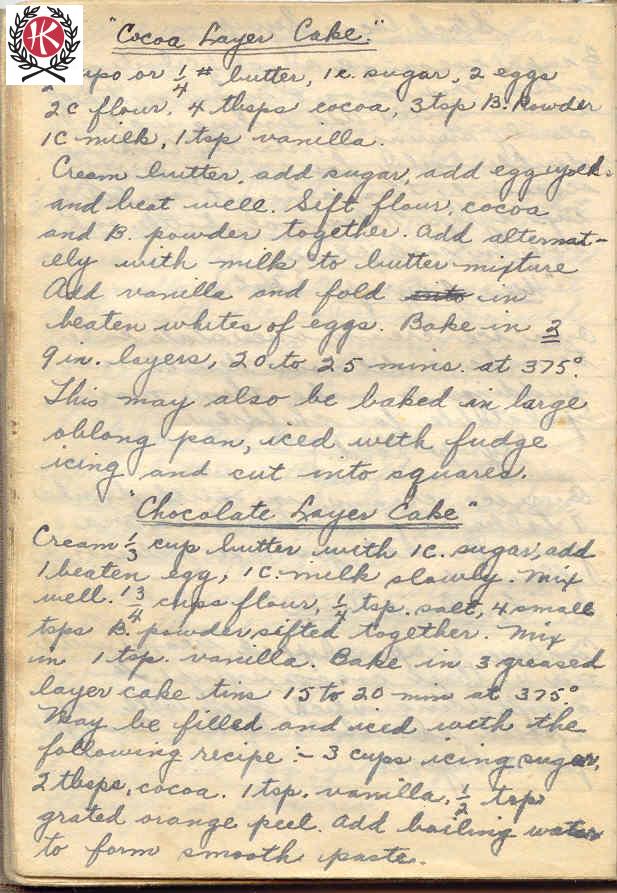 HK
"Cocoa Layer Cake."
or 1/4 # butter, 1c. sugar, 2 eggs
2c flour, 4 tbsps cocoa, 3 tsp B. Powder
1c milk, 1 tsp vanilla.
Cream butter, add sugar, add egg yolk.
and beat well. Sift flour, cocoa
and B. powder together. Add alternat-
ely with milk to butter mixture
Add vanilla and fold in
beaten whites of eggs. Bake in 2
9 in. layers, 20 to 25 mins. at 375°.
This may also be baked in large
oblong pan, iced with fudge
icing and cut into squares.
"Chocolate Layer Cake"
Cream 1/3 cup butter with 1c. sugar, add
1 beaten egg, 1 C. milk slowly. Mix
well. 1 3/4 cups flour, 1/4 tsp. salt, 4 small
tsps B. powder, sifted together. Mix
in 1 tsp. vanilla. Bake in 3 greased
layer cake tins 15 to 20 min at 375°
May be filled and iced with the
following recipe :- 3 cups icing sugar,
2 tbsps, cocoa. 1 tsp. vanilla, 1/2 tsp
grated orange peel. Add boiling water
to form smooth paste.